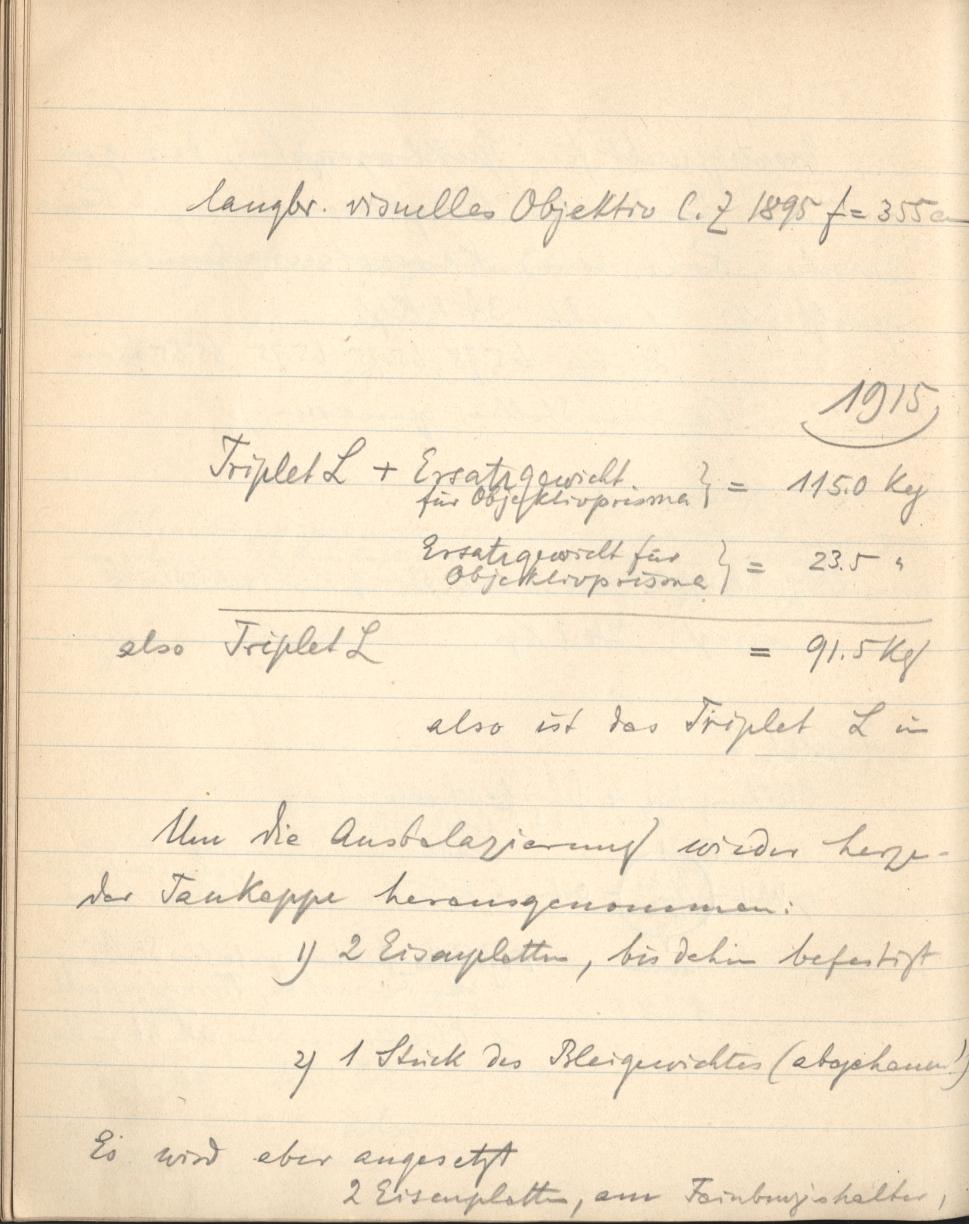 langbr. visuelles Objektiv C. Z 1895 f = 355 cm
1915
Triplet L + Ersatzgewicht
für Objektivprisma } = 115.0 Kg
Ersatzgewicht für
Objektivprisma } = 23.5 "
also Triplet L = 91.5 Kg
also ist das Triplet L in
Um die Ausbalazierung wieder herze-
der Taukappe herausgenommen:
1) 2 Eisenplatten, bis dahin befestigt
2) 1 Stück des Bleigewichtes (abgehauen!)
Es wird aber angesetzt
2 Eisenplatten, am